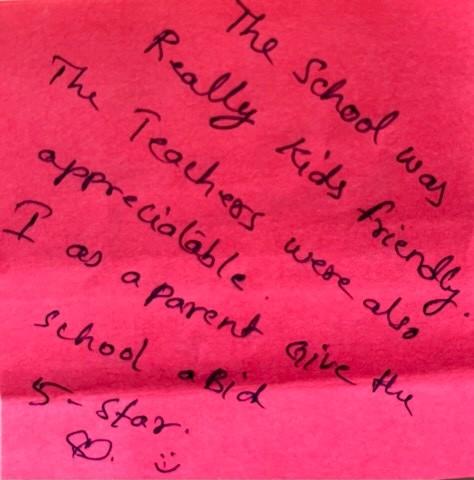 The School was
Really kids friendly.
The Teachers were also
appreciatable.
I as a parent Give the
school a Big
5-Star.